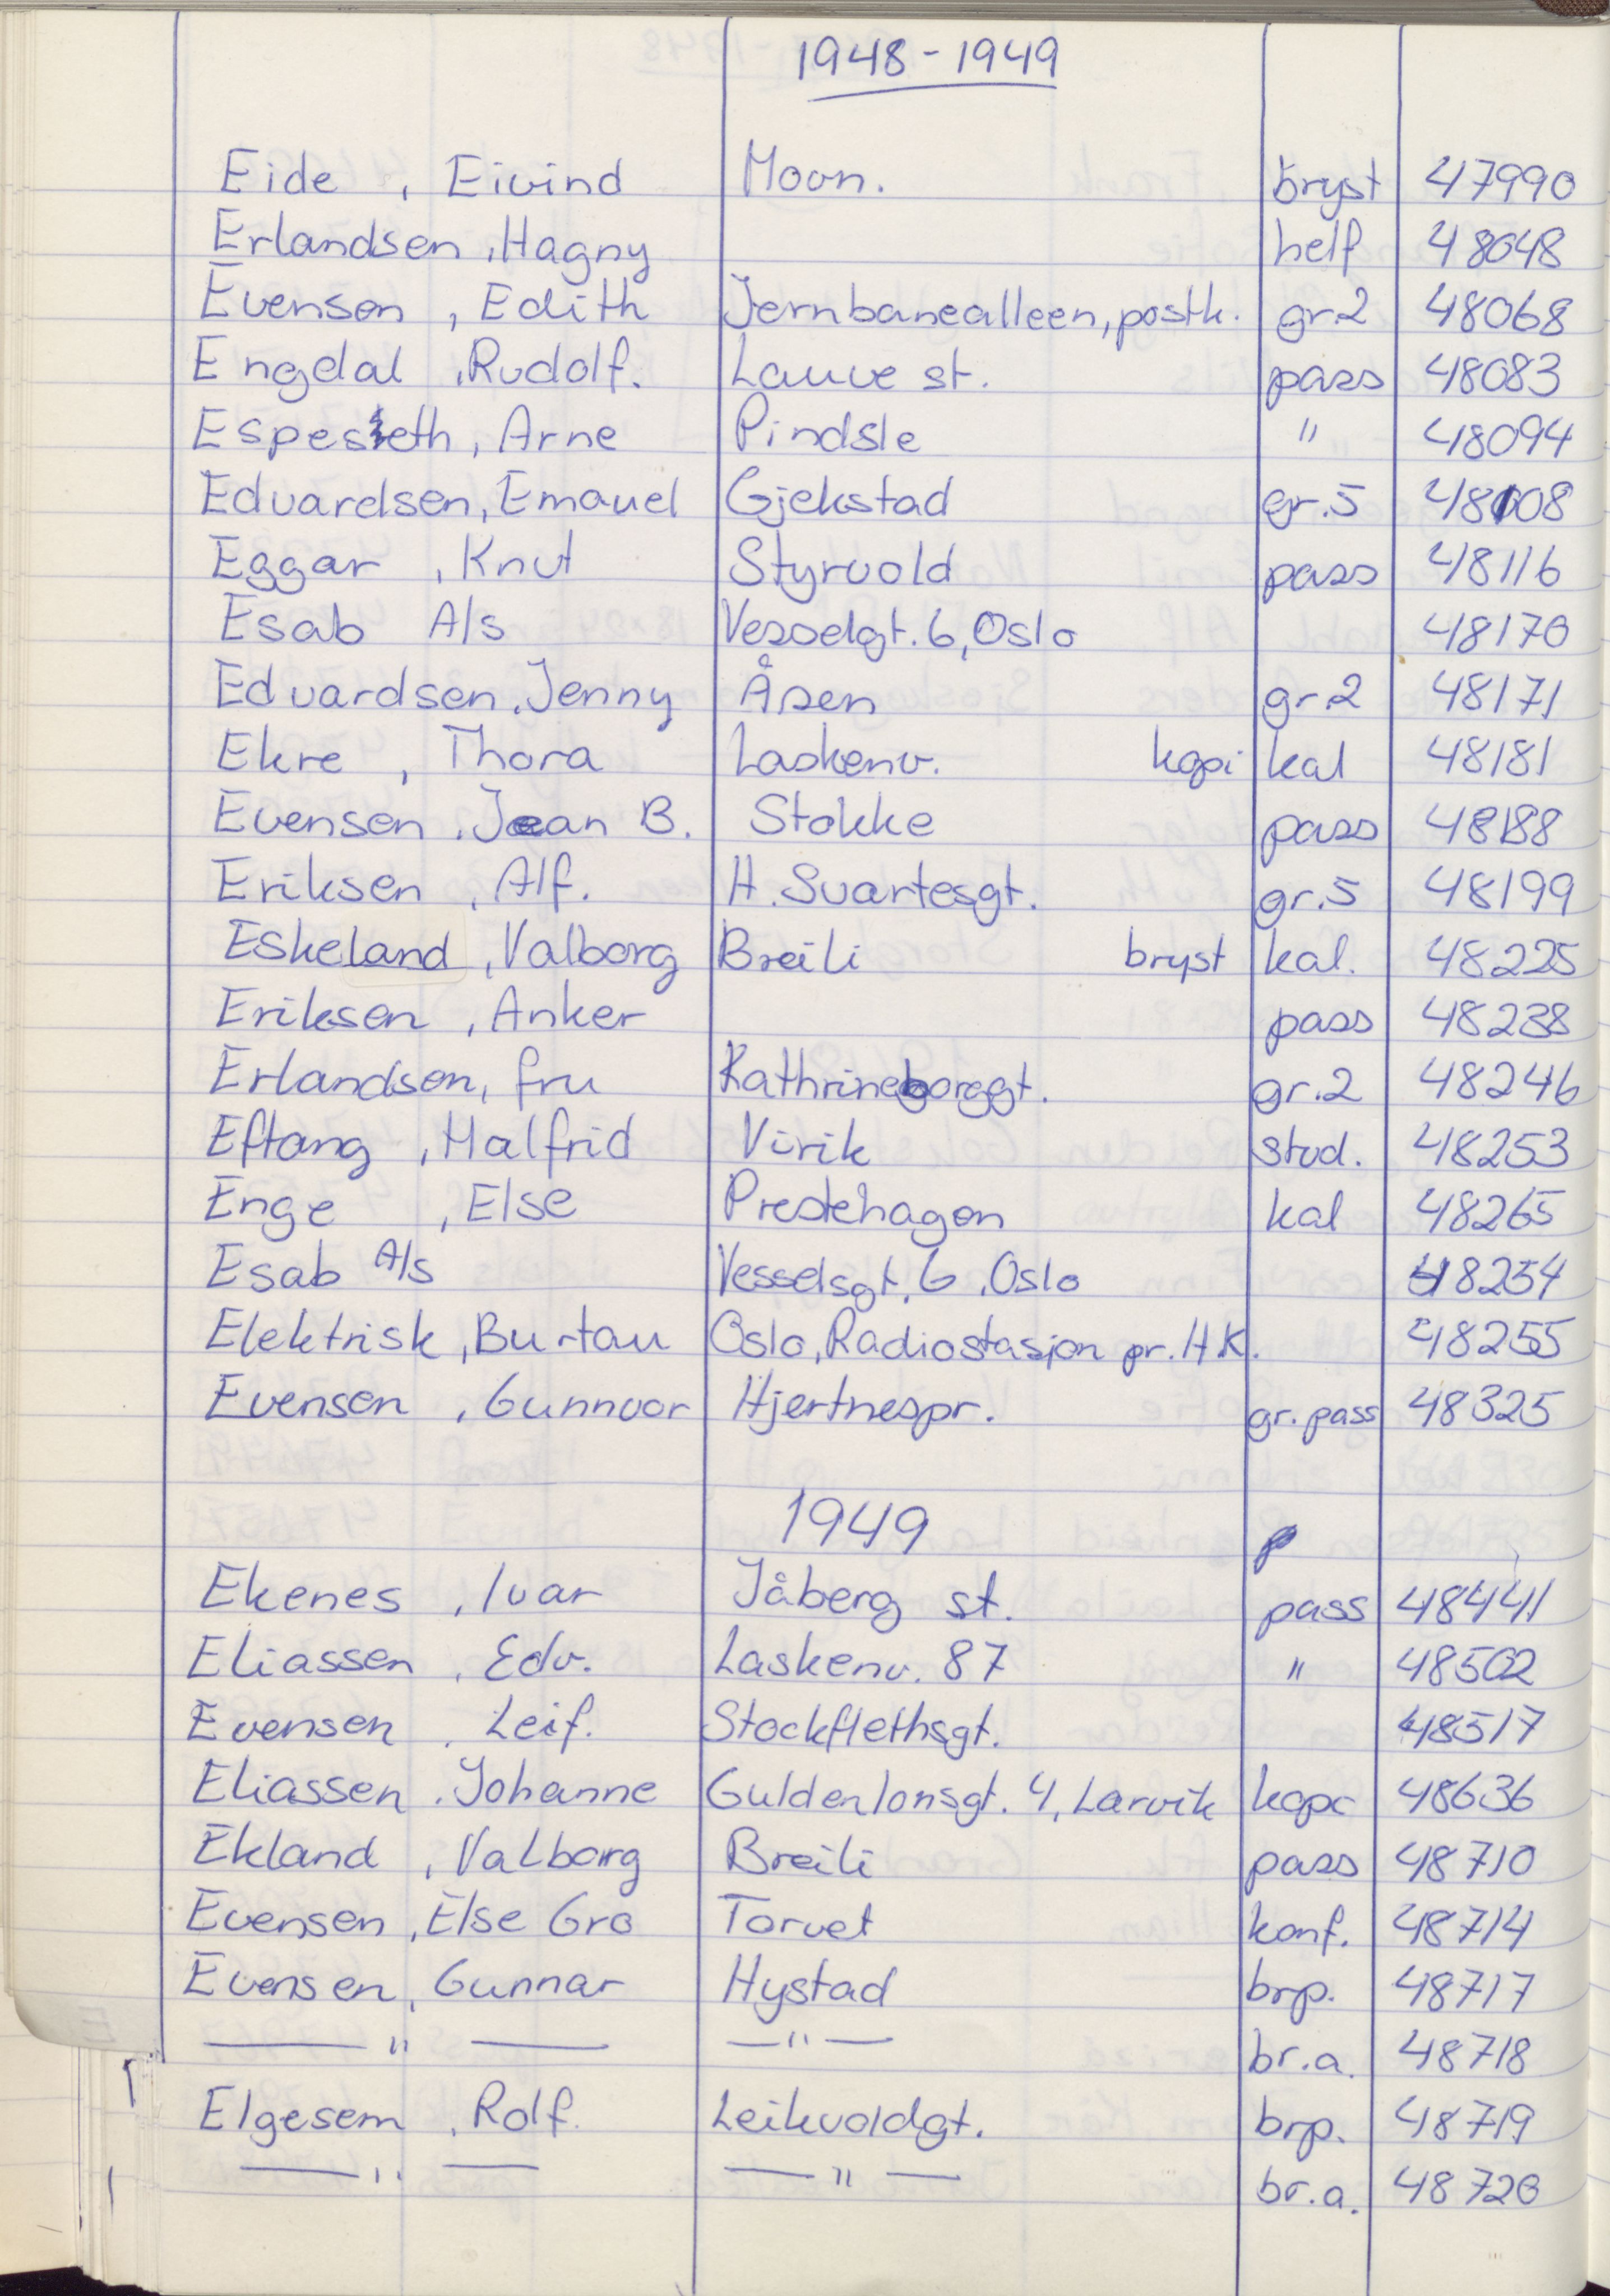 1948-1949
Eide , Eivind Moon. bryst 47990
Erlandsen , Hagny helf 48048
Evensen , Edith Jernbanealleen, postk. gr.2 48068
Engdal , Rudolf. Lauve st. pass 48083
Espeseth, Arne Pindsle " 48094
Edvardsen, Emauel Gjekstad gr.5 48108
Eggar , Knut Styrvold pass 48116
Esab A/s Vesselgt. 6, Oslo 48170
Edvardsen, Jenny Åsen gr.2 48171
Ekre , Thora Laskenv. kopi kal 48181
Evensen , Jean B. Stokke pass 48188
Eriksen , Alf. H. Svartesgt. gr.5 48199
Eskeland , Valborg Breili bryst kal. 48225
Eriksen , Anker pass 48238
Erlandsen, fru Kathrineborggt. gr.2 48246
Eftang , Halfrid Virik stud. 48253
Enge , Else Prestehagen kal 48265
Esab A/s Vesselsgt. 6, Oslo 48254
Elektrisk, Burtau Oslo, Radiostasjon pr. H.K. 48255
Evensen , Gunnvor Hjertnespr. gr. pass 48325
1949
Ekenes , Ivar Jåberg st. pass 48441
Eliassen , Edv. Laskenv. 87 " 48502
Evensen , Leif. Stockflethsgt. 48517
Eliassen , Johanne Guldenlonsgt. 4, Larvik kopi 48636
Ekland , Valborg Breili pass 48710
Evensen , Else Gro Torvet konf. 48714
Evensen, Gunnar Hystad brp. 48717
— " — — " — br.a. 48718
Elgesem , Rolf. Leikvoldgt. brp. 48719
— " — — " — br.a. 48720